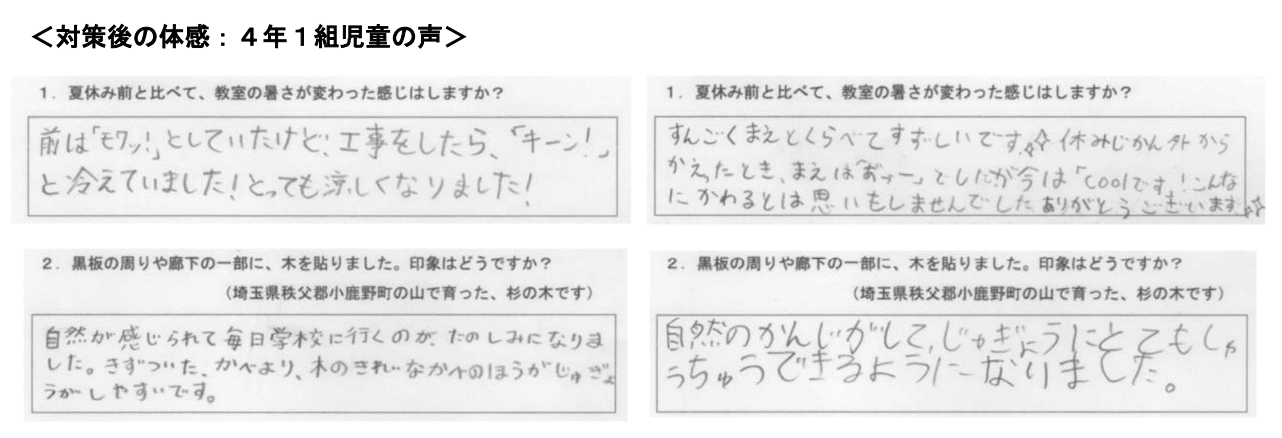 ＜対策後の体感：４年１組児童の声＞
１．夏休み前と比べて、教室の暑さが変わった感じはしますか？
前は「モワッ！」としていたけど、工事をしたら、「キーン！」
と冷えていました！とっても涼しくなりました！
１．夏休み前と比べて、教室の暑さが変わった感じはしますか？
すんごくまえとくらべてすずしいです。☆休みじかん外から
かえったとき、まえは でしたが今は「coolです！こんな
にかわるとは思いもしませんでしたありがとうございます☆
２．黒板の周りや廊下の一部に、木を貼りました。印象はどうですか？
（埼玉県秩父郡小鹿野町の山で育った、杉の木です）
自然が感じられて毎日学校に行くのが、たのしみになりま
した。きずついた、かべより、木のきれいなかべのほうがじゅぎょ
うがしやすいです。
２．黒板の周りや廊下の一部に、木を貼りました。印象はどうですか？
（埼玉県秩父郡小鹿野町の山で育った、杉の木です）
自然のかんじがして、じゅぎょうにとてもしゅ
うちゅうできるようになりました。